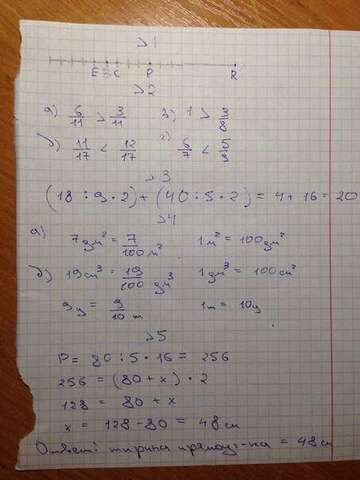 >1
E B C P R
>2
а) 6/11 > 3/11 в) 1 > 3/8
б) 11/17 < 12/17 г) 6/7 < 5/3
>3
(18 : 9 · 2) + (40 : 5 · 2) = 4 + 16 = 20
>4
а) 7 дм² = 7/100 м² 1 м² = 100 дм²
б) 19 см³ = 19/100 дм³ 1 дм³ = 100 см²
9 ц = 9/10 т 1 т = 10 ц
>5
P = 80 : 5 · 16 = 256
256 = (80 + x) · 2
128 = 80 + x
x = 128 - 80 = 48 см
Ответ: ширина прямоуг-ка = 48 см